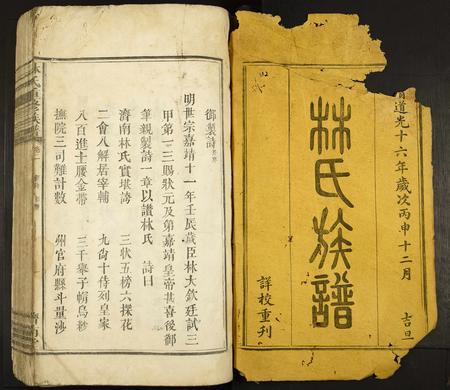 清道光十六年歲次丙申十二月 吉旦
林氏族譜
詳校重刊
御製詩
明世宗嘉靖十一年壬辰歲臣林大欽廷試三
甲第一三賜狀元及第嘉靖皇帝甚喜後御
筆親製詩一章以讚林氏 詩曰
濟南林氏實堪誇 三狀五榜六探花
二會八解居宰輔 九尚十侍刻皇家
八百進士腰金帶 三千舉子帽烏紗
撫院三司難計數 州官府縣斗量沙
林氏重修族譜